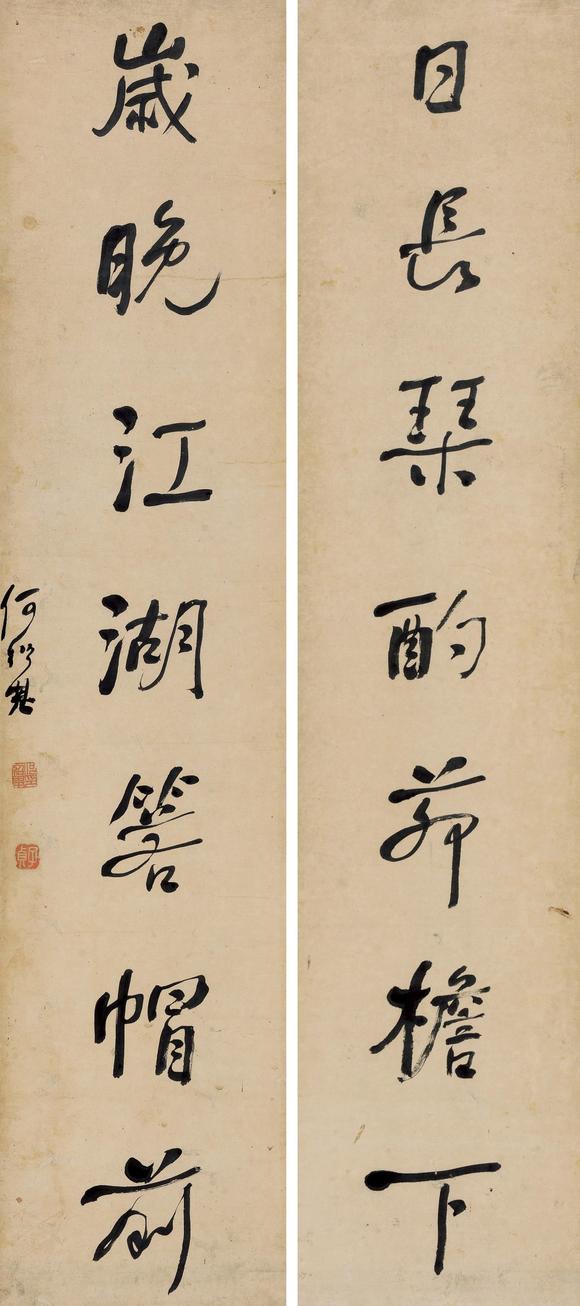 日長琹酌茆檐下
歲晚江湖箬帽前
何紹基
子貞